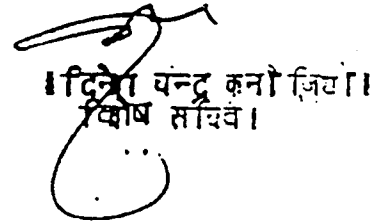 । दिनेश चन्द्र कनौजिया।
विशेष सचिव।